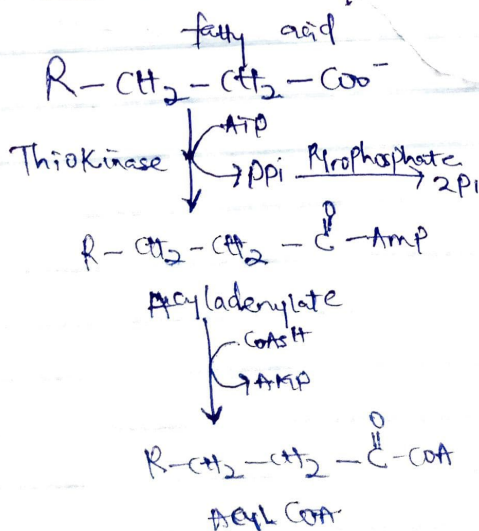 fatty acid
R-CH2-CH2-COO⁻
ATP
Thiokinase
PPi Pyrophosphate 2Pi
R-CH2-CH2-C-AMP
O
Acyladenylate
CoASH
AMP
O
R-CH2-CH2-C-COA
Acyl COA